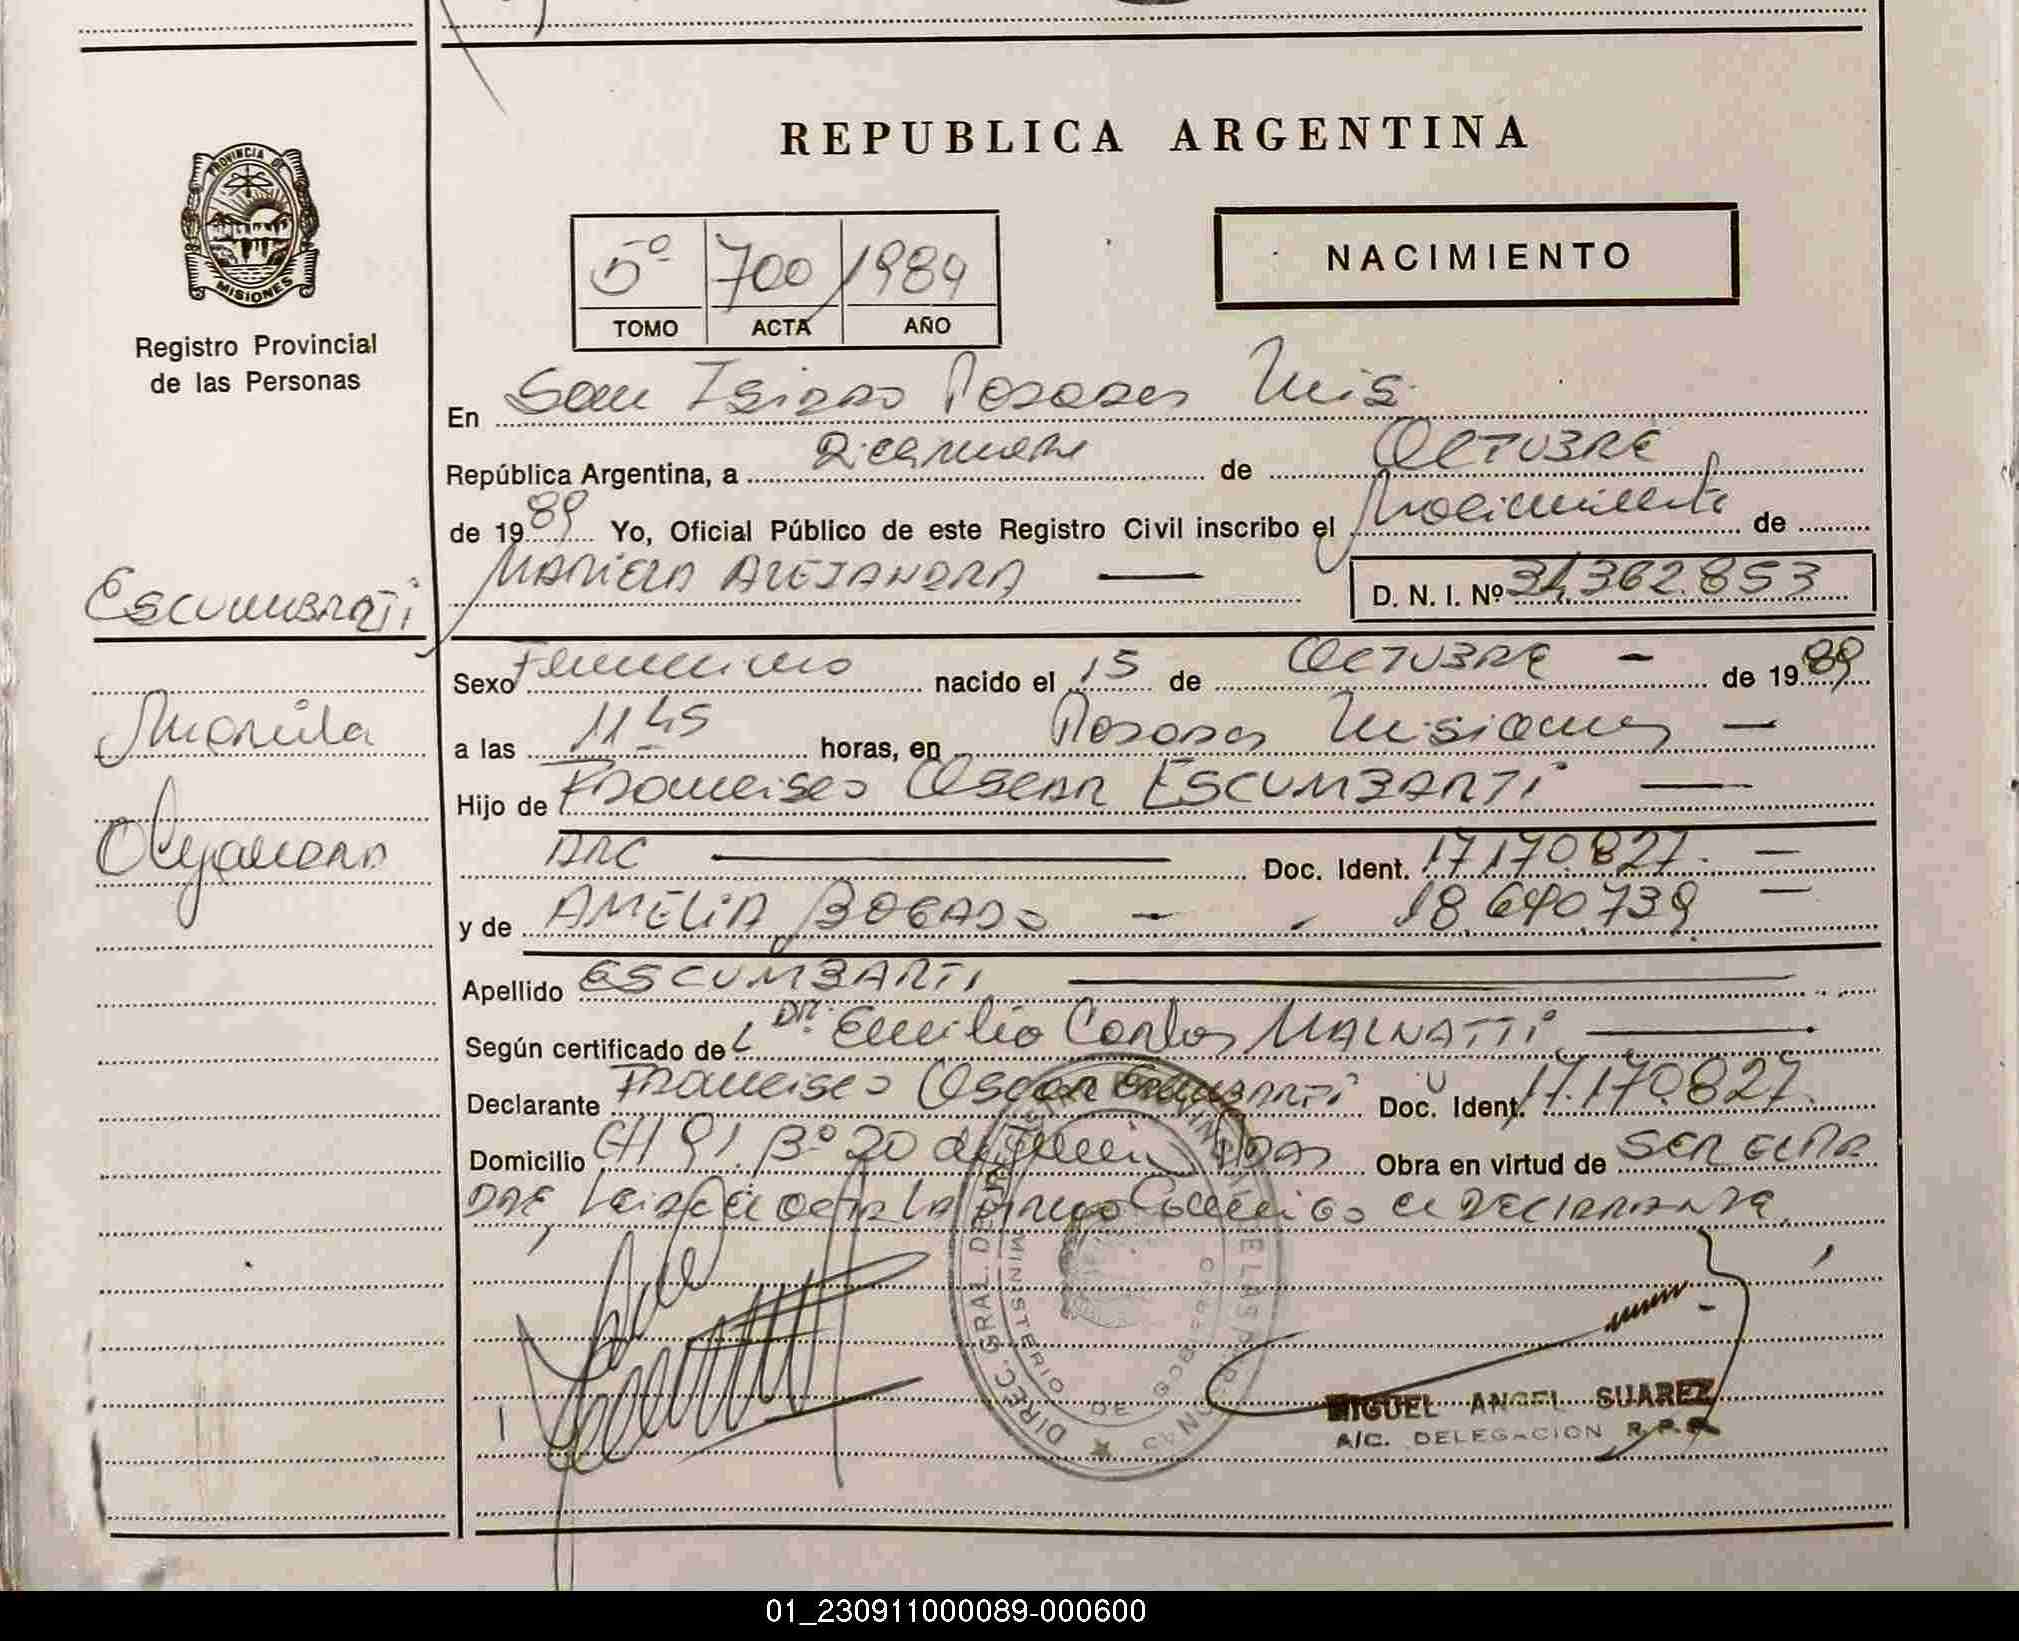 PROVINCIA DE
MISIONES
Registro Provincial
de las Personas
REPUBLICA ARGENTINA
5º 700 1989
TOMO ACTA AÑO
NACIMIENTO
En San Isidro Posadas Mis.
República Argentina, a de OCTUBRE
de 1989 Yo, Oficial Público de este Registro Civil inscribo el Nacimiento de
MARIELA ALEJANDRA —
D. N. I. Nº 34.362.853
ESCUMBARTI
Mariela
Alejandra
Sexo Femenino nacido el 15 de OCTUBRE - de 1989
a las 11 45 horas, en Posadas Misiones —
Hijo de Francisco Oscar ESCUMBARTI —
ARG — Doc. Ident. 17.170.827. —
y de AMELIA BOGADO - 18.690.739 —
Apellido ESCUMBARTI —
Según certificado de DR. Emilio Carlos MALNATTI —
Declarante Francisco Oscar ESCUMBARTI Doc. Ident. 17.170.827.
Domicilio CH 91. Bº 20 de Pdas Obra en virtud de SER EL PA
DRE, Leida el acta la firma Conmigo el DECLARANTE
DIREC. GRAL. DEL REGISTRO PROVINCIAL DE LAS PERSONAS
MINISTERIO DE GOBIERNO
MIGUEL ANGEL SUAREZ
A/C. DELEGACION R.P.P.
01_230911000089-000600